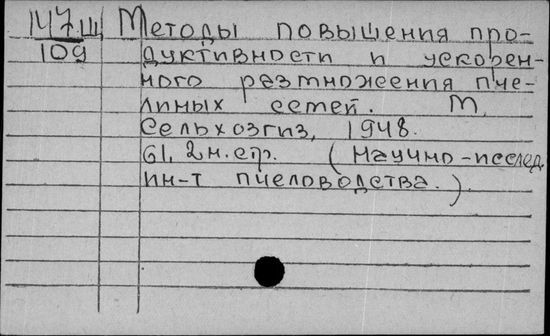 147Ш Методы повышения про-
109 дуктивности и ускорен-
ного резтножения пче-
линых сетей. М,
Сельхозгиз, 1948.
61, 2 н. ср. (Научно-исслед.
ин-т пчеловодства.).